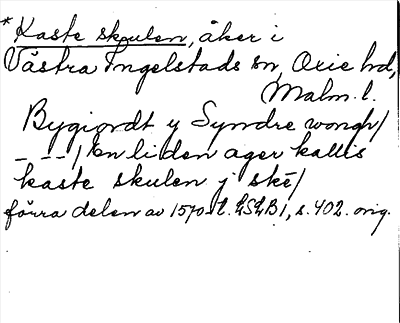 *Kaste skulen, åker i
Västra Ingelstads sn, Oxie hd,
Malm. l.
Bygiordt y Syndre wongh/
_ _ _ / En liden ager kallis
kaste skulen j skē/
förra delen av 1570-t. LSLB1, s. 402. orig.